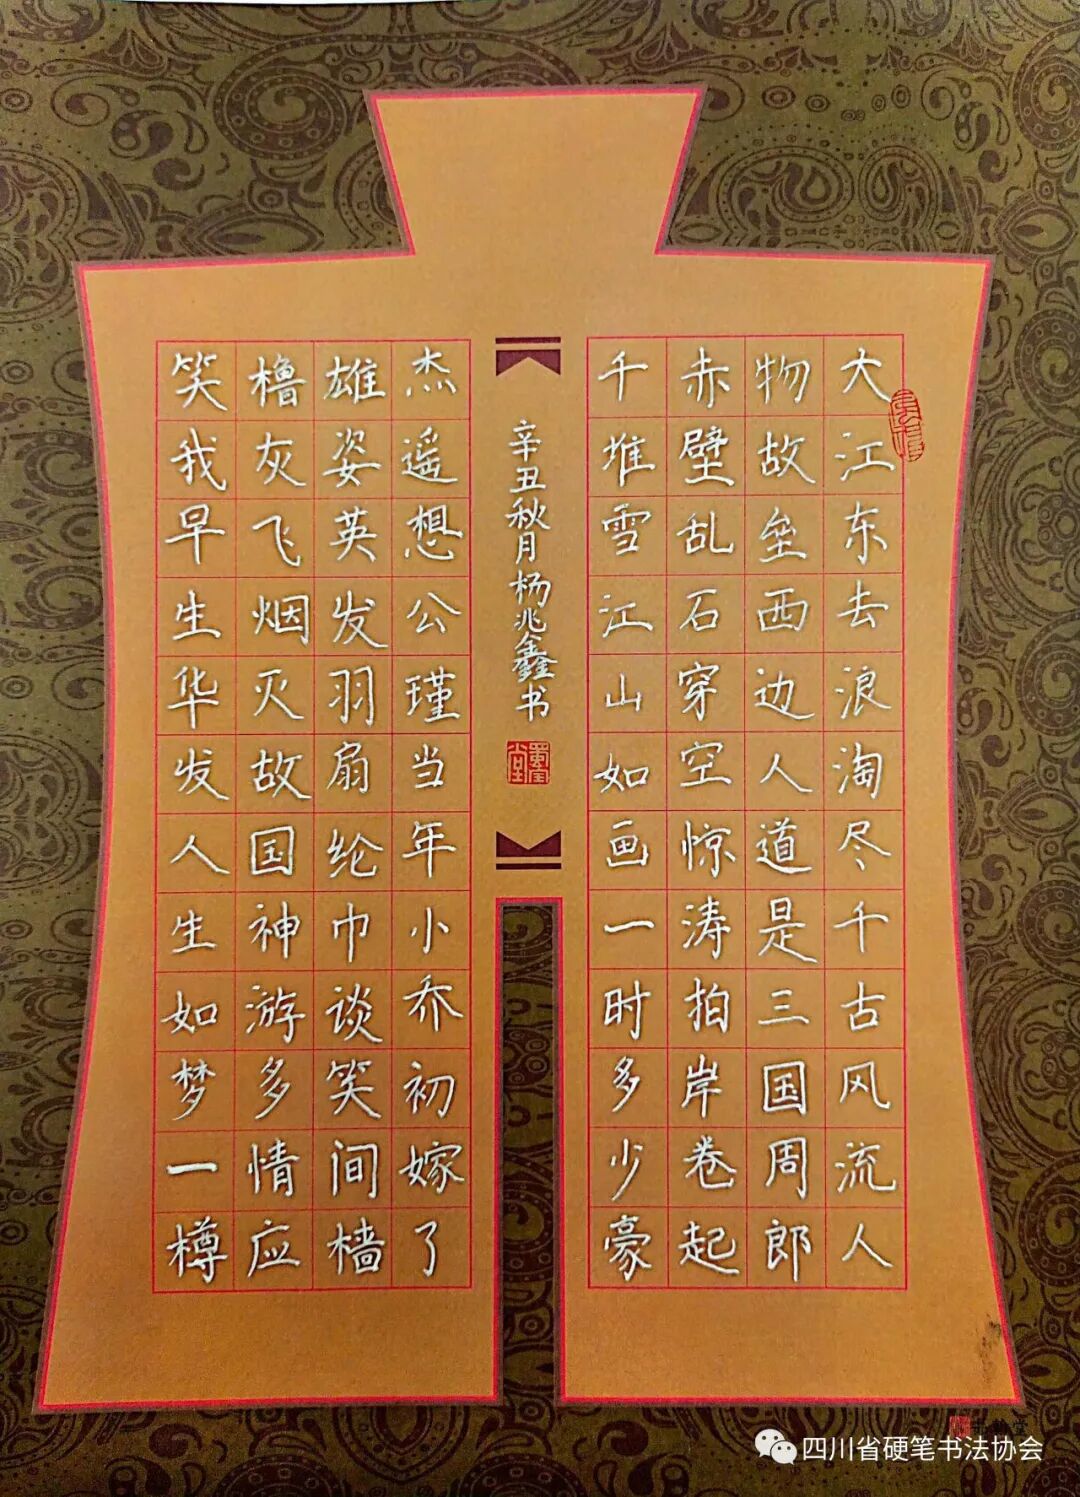 大江东去浪淘尽千古风流人
物故垒西边人道是三国周郎
赤壁乱石穿空惊涛拍岸卷起
千堆雪江山如画一时多少豪
杰遥想公瑾当年小乔初嫁了
雄姿英发羽扇纶巾谈笑间樯
橹灰飞烟灭故国神游多情应
笑我早生华发人生如梦一樽
辛丑秋月杨兆鑫书
四川省硬笔书法协会